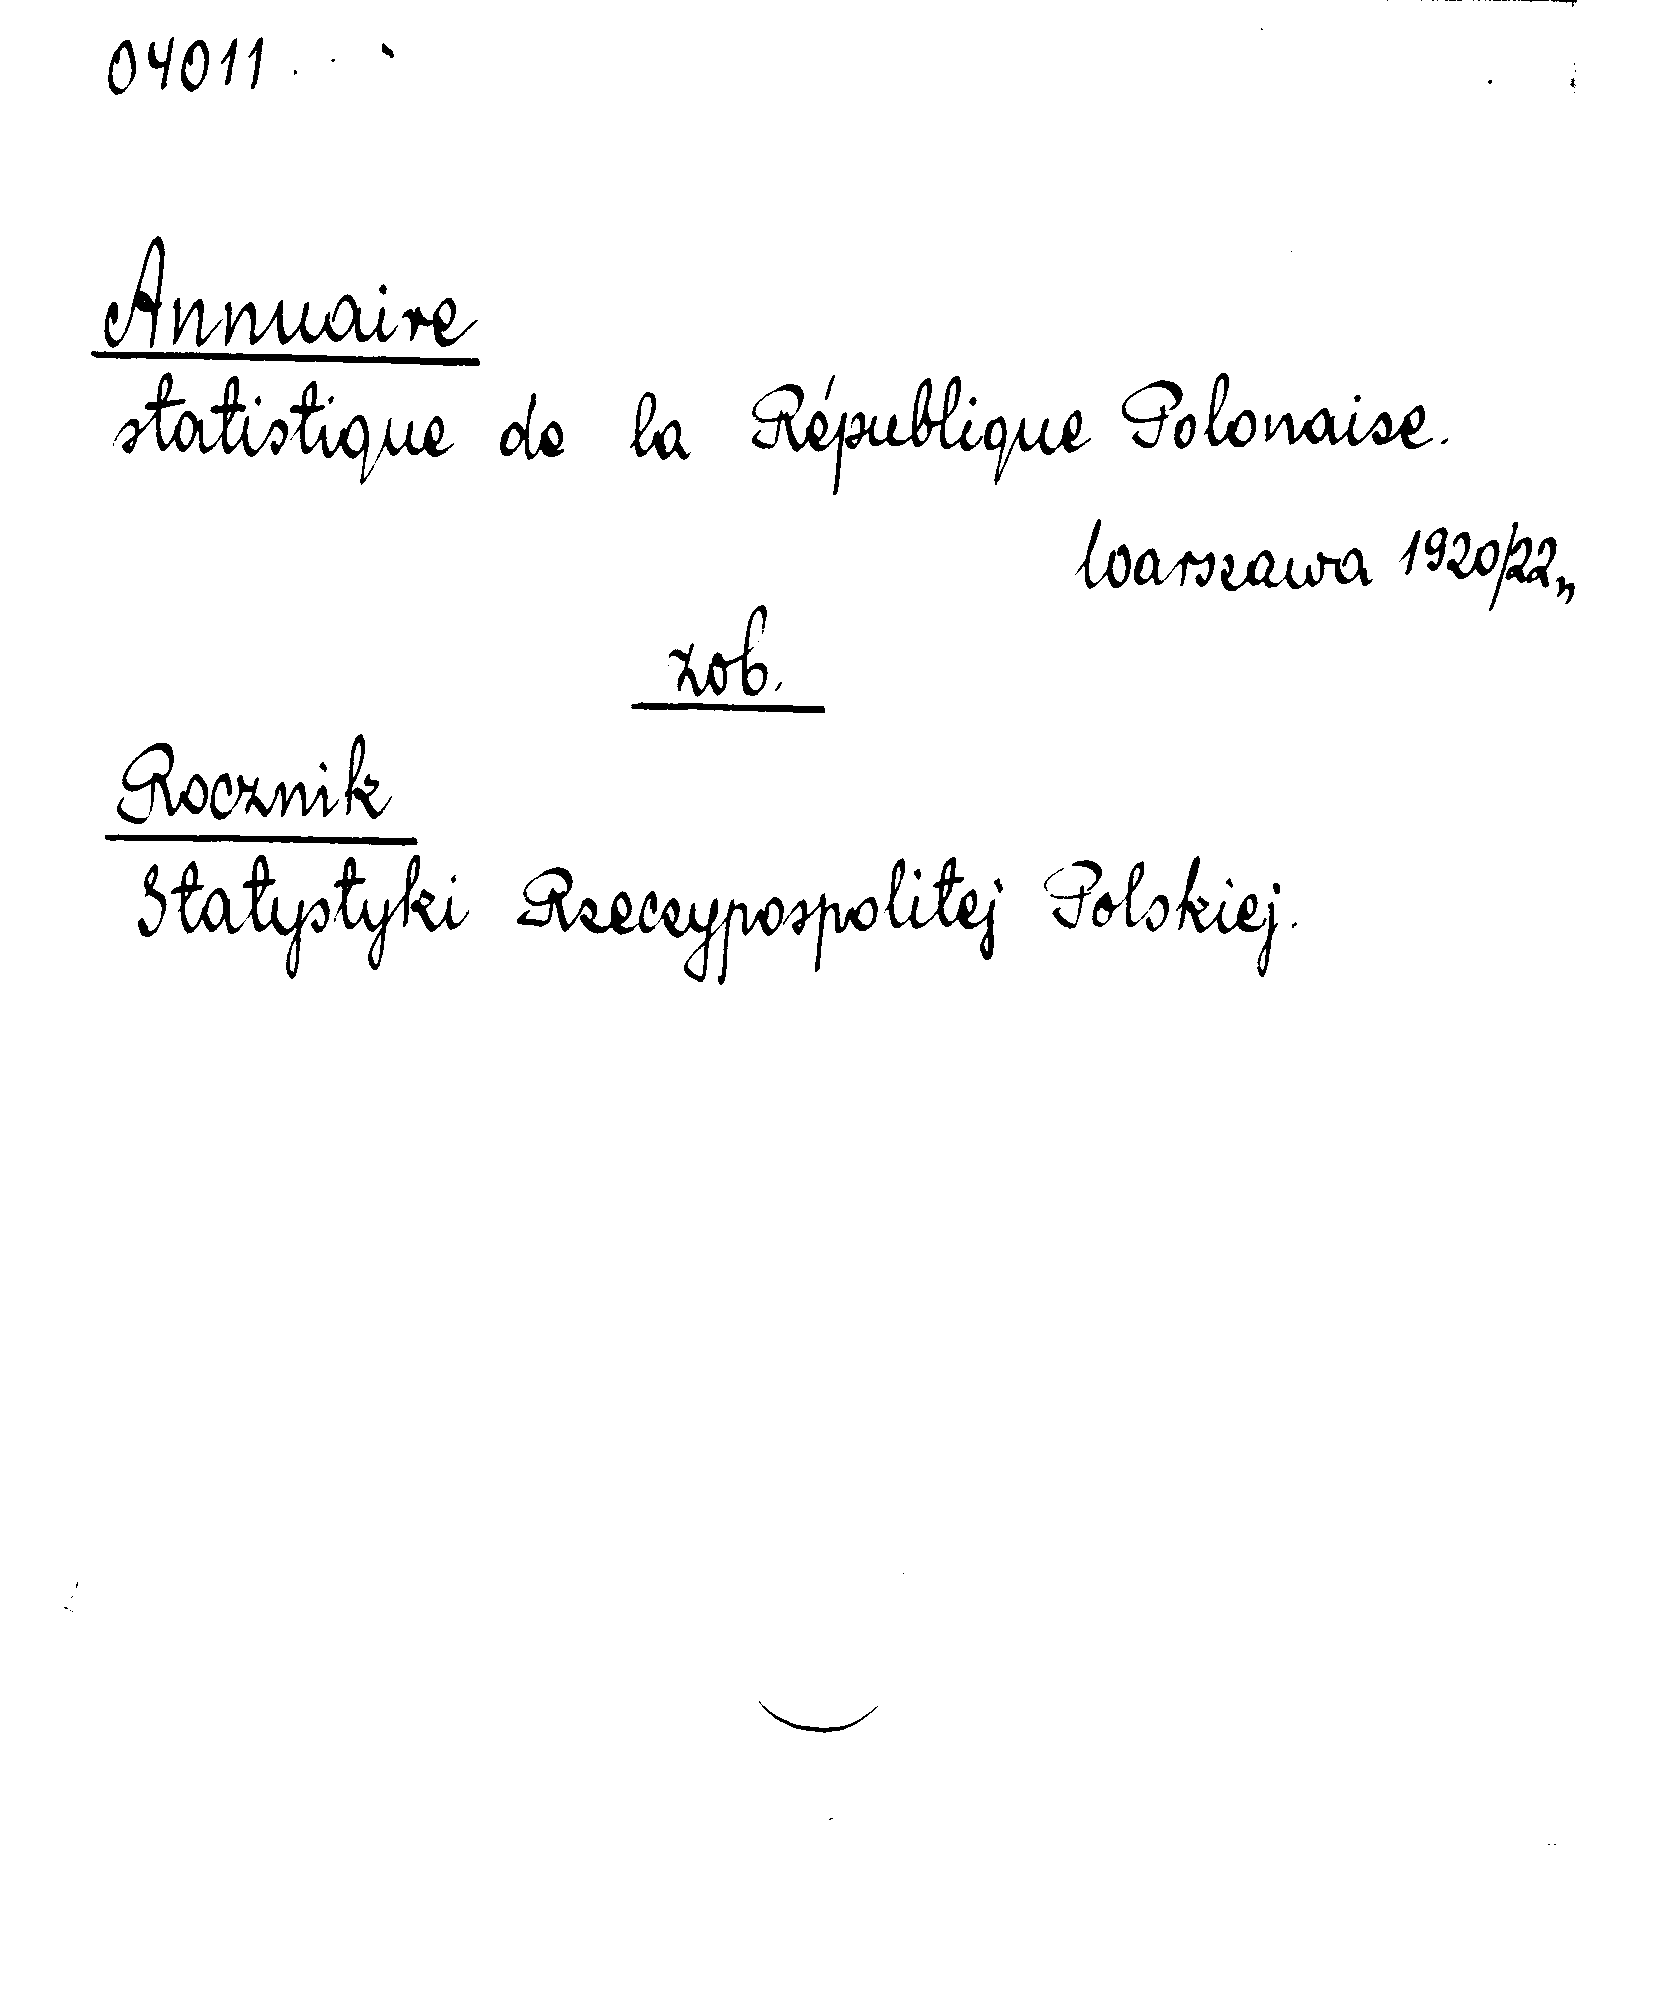 04011
Annuaire
statistique de la République Polonaise.
Warszawa 1920/22,,
zob.
Rocznik
Statystyki Rzeczypospolitej Polskiej.